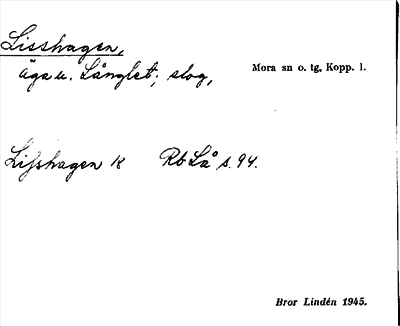 Lisshagen,
Mora sn o. tg, Kopp. l.
äga u. Långlet; slog,
Lisshagen R RbLå s. 94.
Bror Lindén 1945.